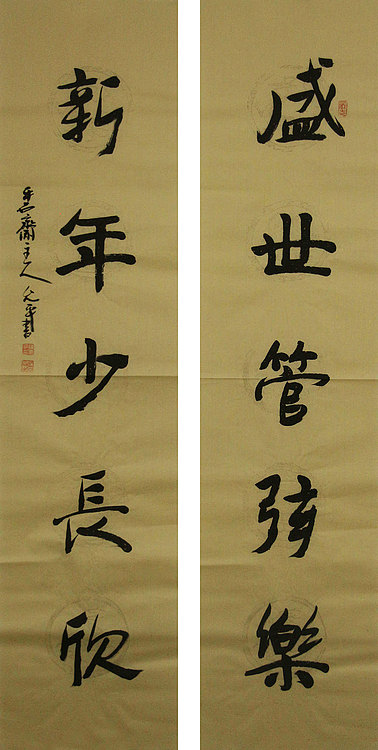 盛世管弦樂
新年少長欣
齋主人 書